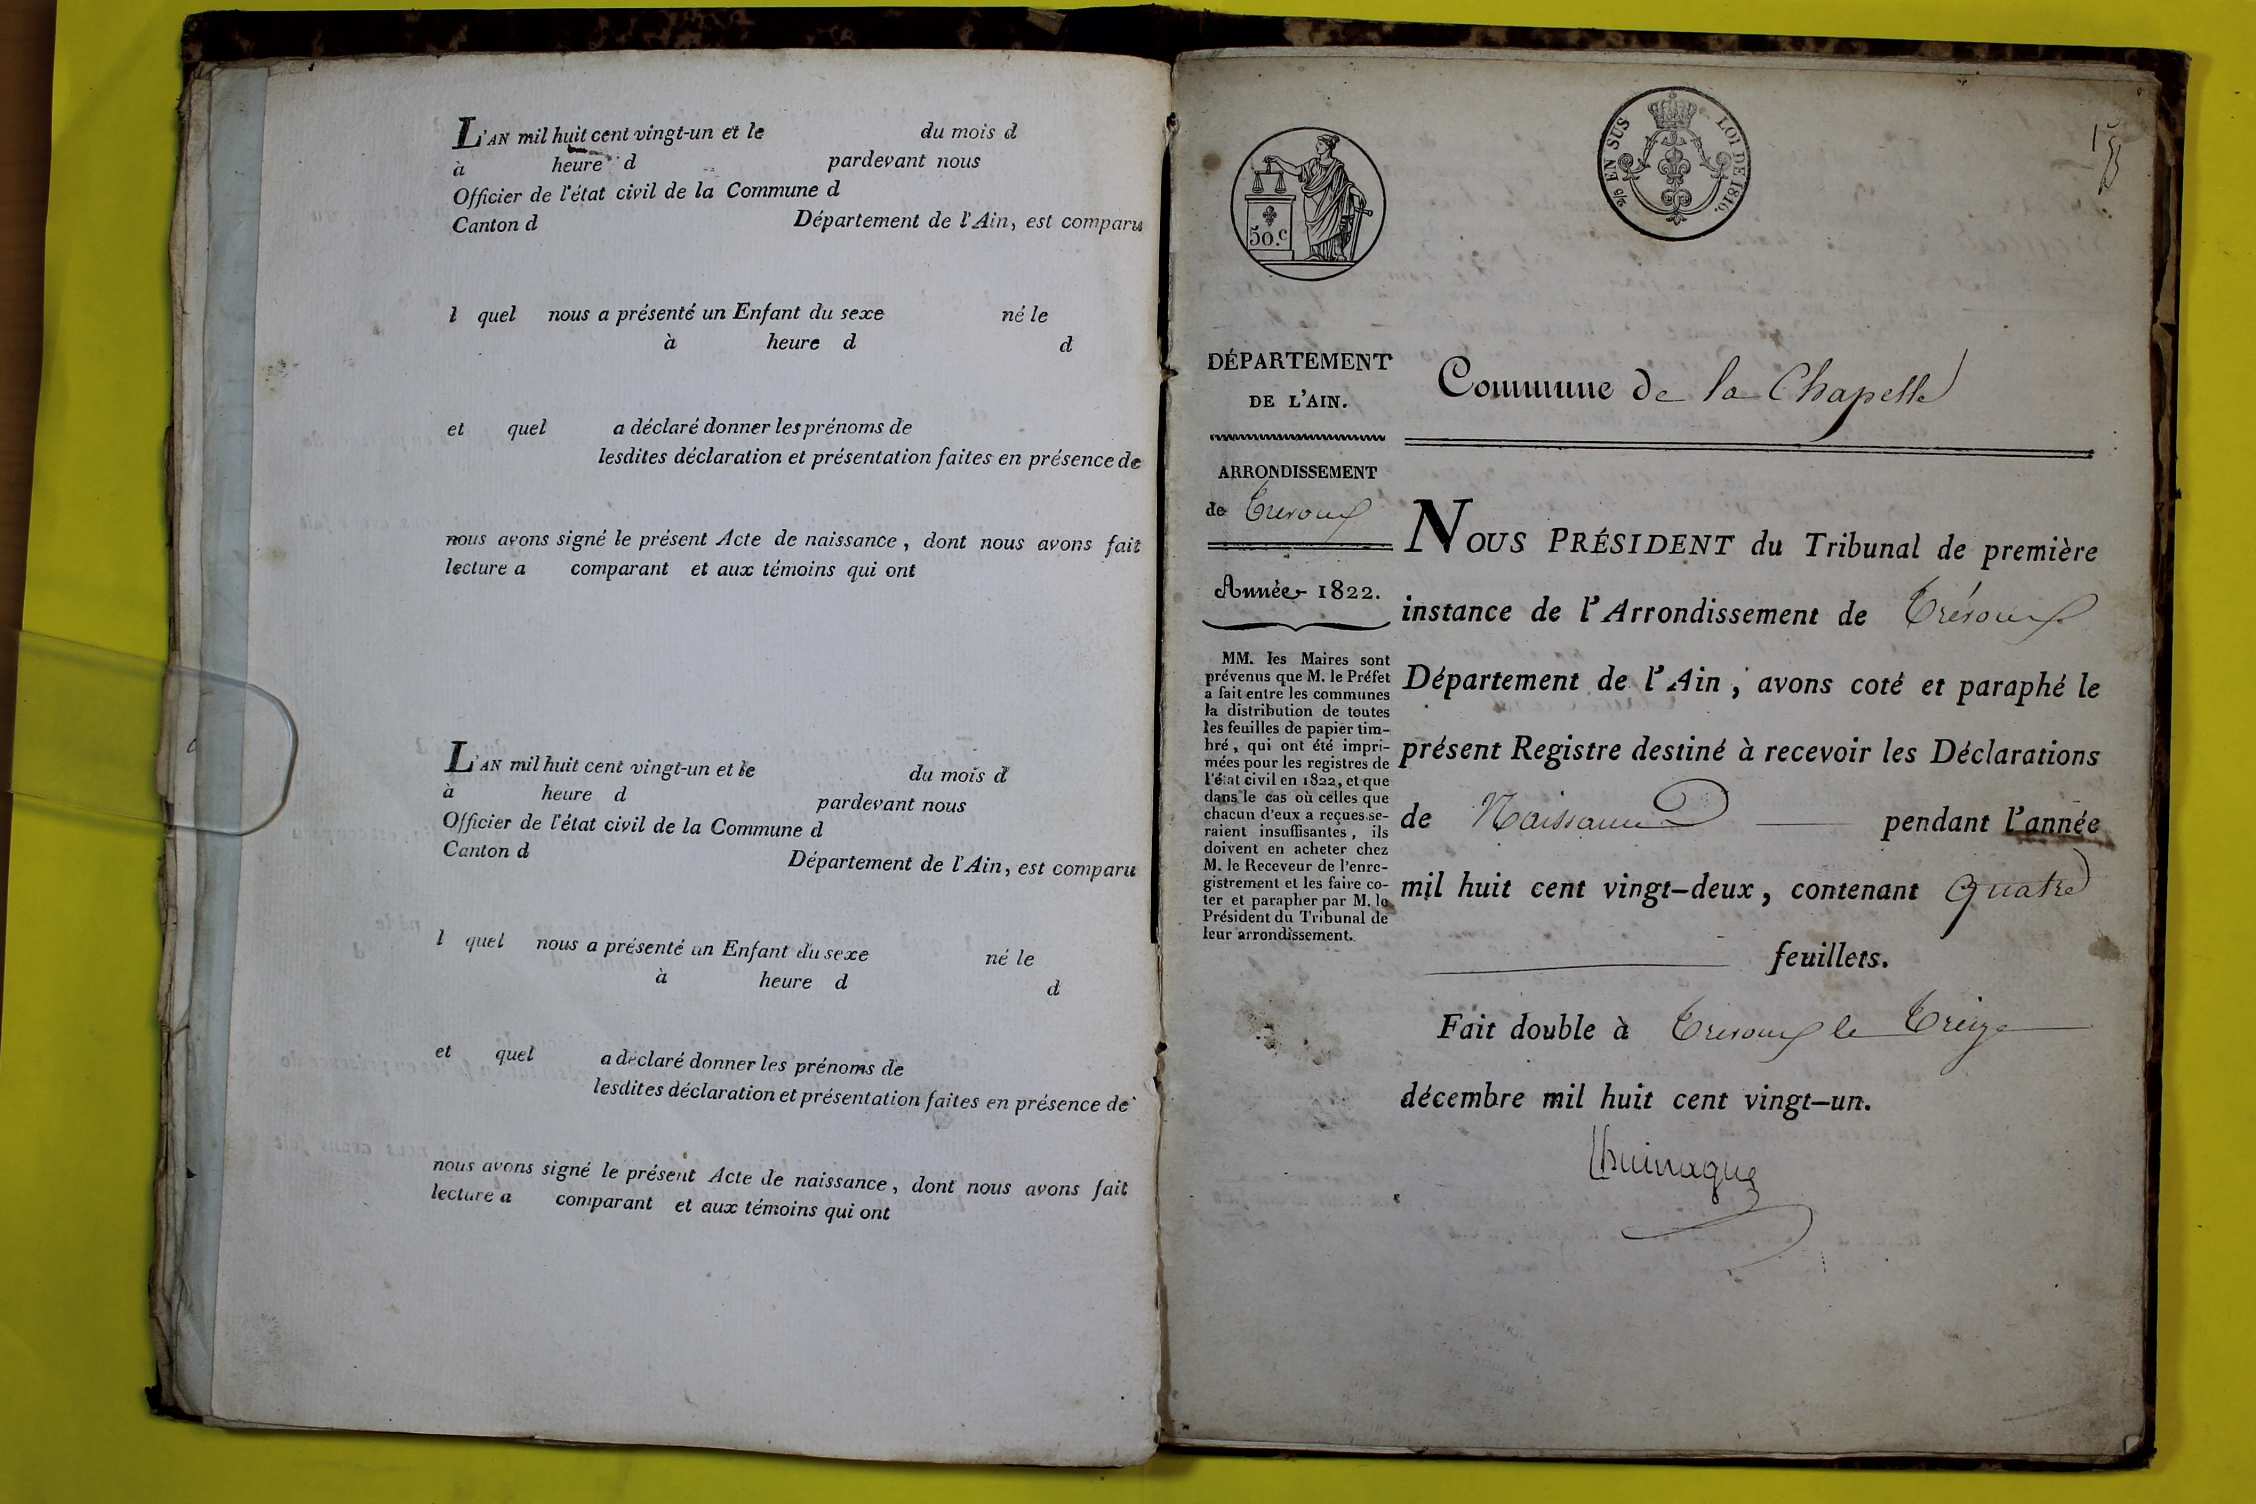 L'AN mil huit cent vingt-un et le du mois d
à heure d pardevant nous
Officier de l'état civil de la Commune d
Canton d Département de l'Ain, est comparu
l quel nous a présenté un Enfant du sexe né le
à heure d d
et quel a déclaré donner les prénoms de
lesdites déclaration et présentation faites en présence de
nous avons signé le présent Acte de naissance, dont nous avons fait
lecture a comparant et aux témoins qui ont
L'AN mil huit cent vingt-un et le du mois d
à heure d pardevant nous
Officier de l'état civil de la Commune d
Canton d Département de l'Ain, est comparu
l quel nous a présenté un Enfant du sexe né le
à heure d d
et quel a déclaré donner les prénoms de
lesdites déclaration et présentation faites en présence de
nous avons signé le présent Acte de naissance, dont nous avons fait
lecture a comparant et aux témoins qui ont
50.c
EN SUS LOI DE 1816.
DÉPARTEMENT
DE L'AIN.
ARRONDISSEMENT
de Trévoux
Année 1822.
MM. les Maires sont
prévenus que M. le Préfet
a fait entre les communes
la distribution de toutes
les feuilles de papier tim-
bré, qui ont été impri-
mées pour les registres de
l'état civil en 1822, et que
dans le cas où celles que
chacun d'eux a reçues se-
raient insuffisantes, ils
doivent en acheter chez
M. le Receveur de l'enre-
gistrement et les faire co-
ter et parapher par M. le
Président du Tribunal de
leur arrondissement.
Commune de la Chapelle
NOUS PRÉSIDENT du Tribunal de première
instance de l'Arrondissement de Trévoux
Département de l'Ain, avons coté et paraphé le
présent Registre destiné à recevoir les Déclarations
de Naissance pendant l'année
mil huit cent vingt-deux, contenant quatre
feuillets.
Fait double à Trevoux le Treize
décembre mil huit cent vingt-un.